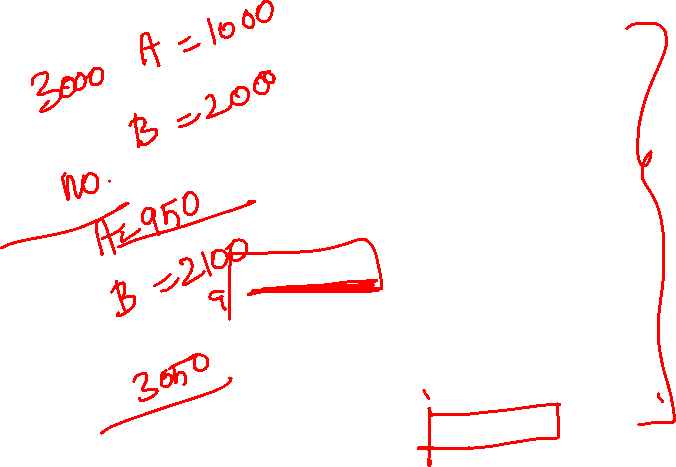 A = 1000
3000
B = 2000
no.
A = 950
B = 2100
a
3050